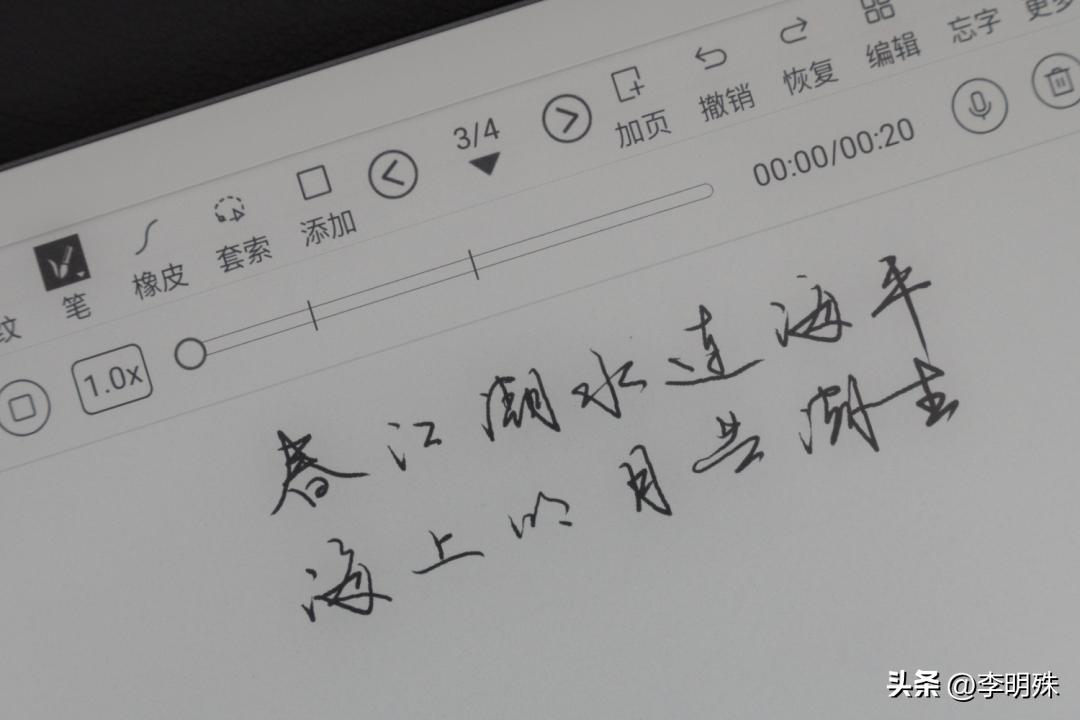 3/4 加页 撤销 恢复 编辑 忘字 更多
纹 笔 橡皮 套索 添加
1.0x 00:00/00:20
春江潮水连海平
海上明月共潮生
头条 @李明殊